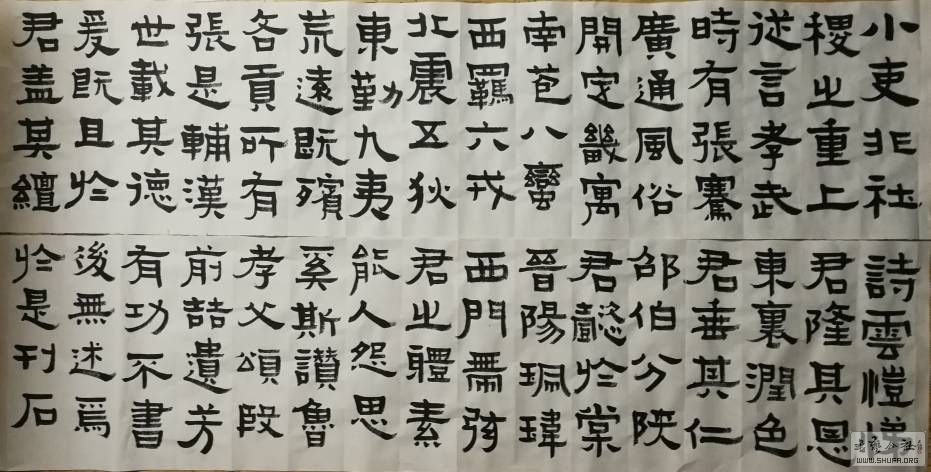 小吏非社
稷之重上
從言孝武
時有張騫
廣通風俗
開定畿寓
南苞八蠻
西羈六戎
北震五狄
東勤九夷
荒遠既殯
各貢所有
張是輔漢
世載其德
爰既且於
君盖其繵
詩雲愷悌
君隆其恩
東裏潤色
君垂其仁
邵伯分陝
君懿於棠
晉陽珮瑋
西門帶弦
君之體素
能人怨思
奚斯讃魯
孝父頌殷
前喆遺芳
有功不書
後無述焉
於是刊石
WWW.SHUFA.ORG